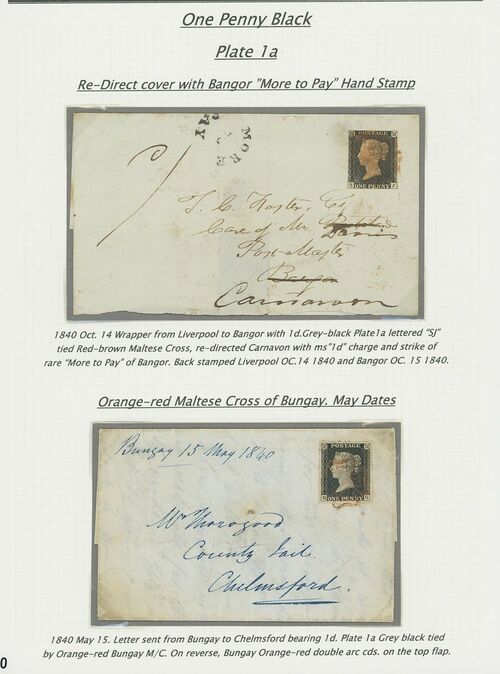 One Penny Black
Plate 1a
Re-Direct cover with Bangor "More to Pay" Hand Stamp
MORE
PAY
POSTAGE
S J
ONE PENNY
1
T. C. Foster, Esq
Care of Mr.
Davies
Post Master
Bangor
Carnarvon
1840 Oct. 14 Wrapper from Liverpool to Bangor with 1d.Grey-black Plate1a lettered "SJ"
tied Red-brown Maltese Cross, re-directed Carnavon with ms"1d" charge and strike of
rare "More to Pay" of Bangor. Back stamped Liverpool OC.14 1840 and Bangor OC. 15 1840.
Orange-red Maltese Cross of Bungay. May Dates
Bungay 15 May 1840
POSTAGE
ONE PENNY
Mr Thorogood
County Jail.
Chelmsford.
1840 May 15. Letter sent from Bungay to Chelmsford bearing 1d. Plate 1a Grey black tied
by Orange-red Bungay M/C. On reverse, Bungay Orange-red double arc cds. on the top flap.
0